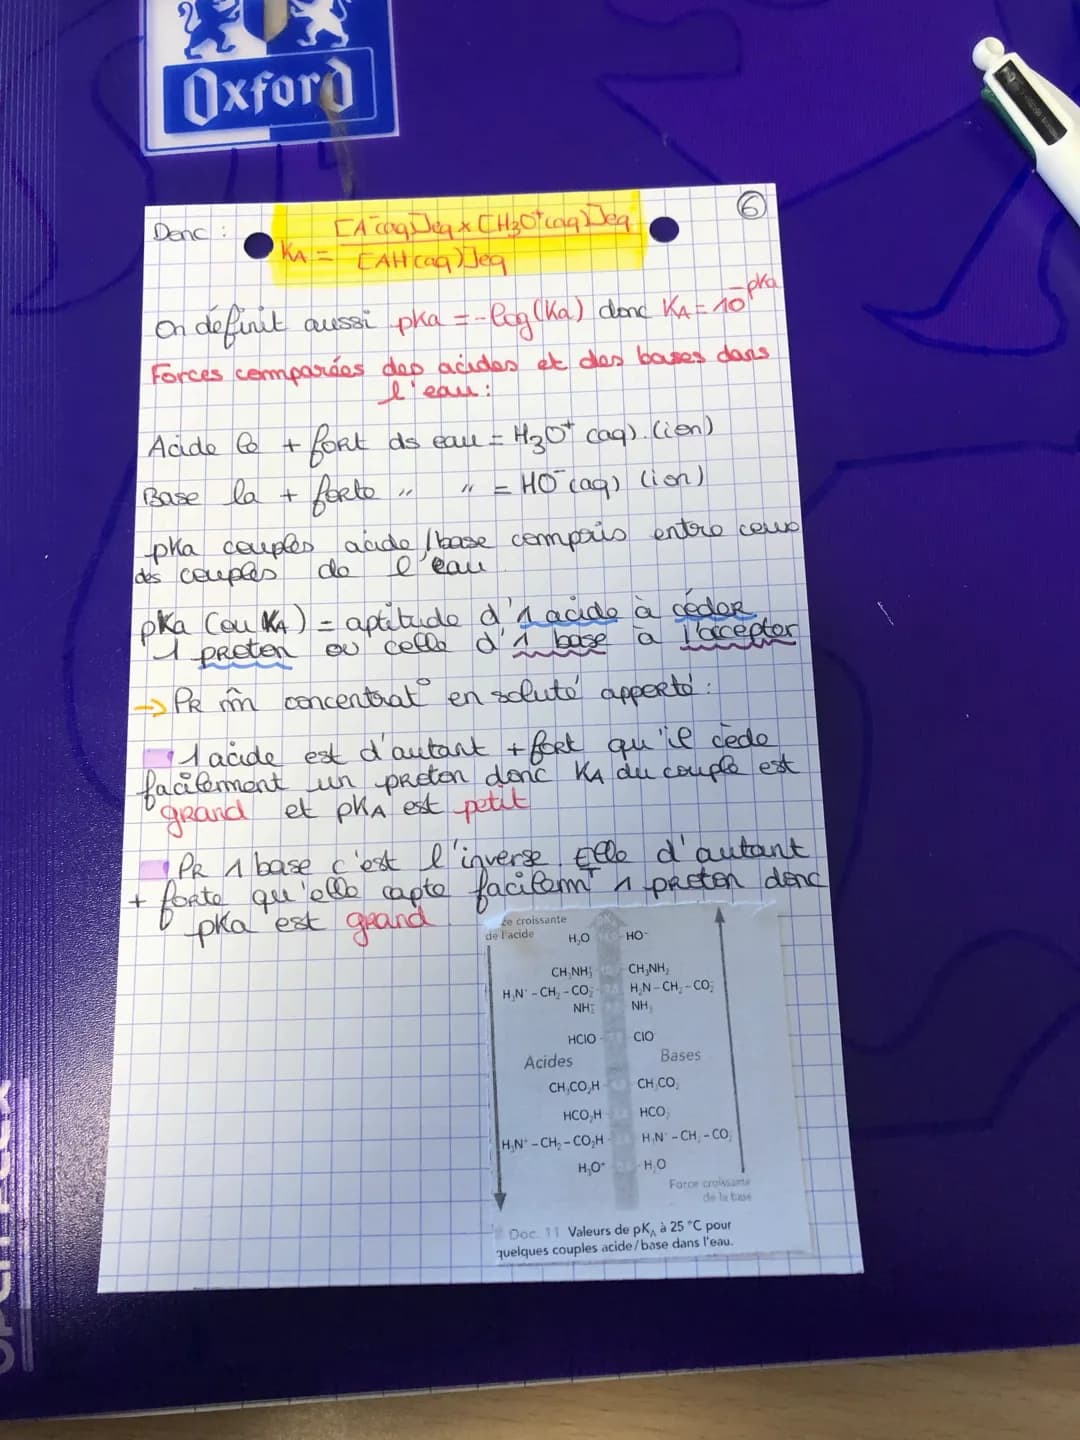 Oxford
⑥
Donc : KA = [A⁻(aq)]éq × [H3O⁺(aq)]éq / [AH(aq)]éq
On définit aussi pka = -log(Ka) donc KA = 10^-pka
Forces comparées des acides et des bases dans
l'eau :
Acide le + fort ds eau = H3O⁺ (aq). (ion)
Base la + forte " " = HO⁻ (aq) (ion)
pka couples acide/base compris entre ceux
des couples de l'eau
pKa (ou KA) = aptitude d'1 acide à céder
1 proton ou celle d'1 base à l'accepter
→ Pr m̂ concentrat° en soluté apporté :
1 acide est d'autant + fort qu'il cède
facilement un proton donc KA du couple est
grand et pKA est petit
Pr 1 base c'est l'inverse Elle d'autant
+ forte qu'elle capte facilemT 1 proton donc
pka est grand
ce croissante
de l'acide
H₂O HO⁻
CH₃NH₃⁺ CH₃NH₂
H₃N⁺-CH₂-CO₂⁻ H₂N-CH₂-CO₂⁻
NH₄⁺ NH₃
HClO ClO
Acides Bases
CH₃CO₂H CH₃CO₂⁻
HCO₂H HCO₂⁻
H₃N⁺-CH₂-CO₂H H₃N⁺-CH₂-CO₂⁻
H₃O⁺ H₂O
Force croissante
de la base
Doc. 11 Valeurs de pKA à 25 °C pour
quelques couples acide/base dans l'eau.